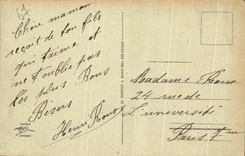 Chere maman
reçoit de ton fils
qui t'aime et
ne t'oublie pas
les plus Bons
Bésers
Henri
Madame
24 rue de
L'université
Paris 7em